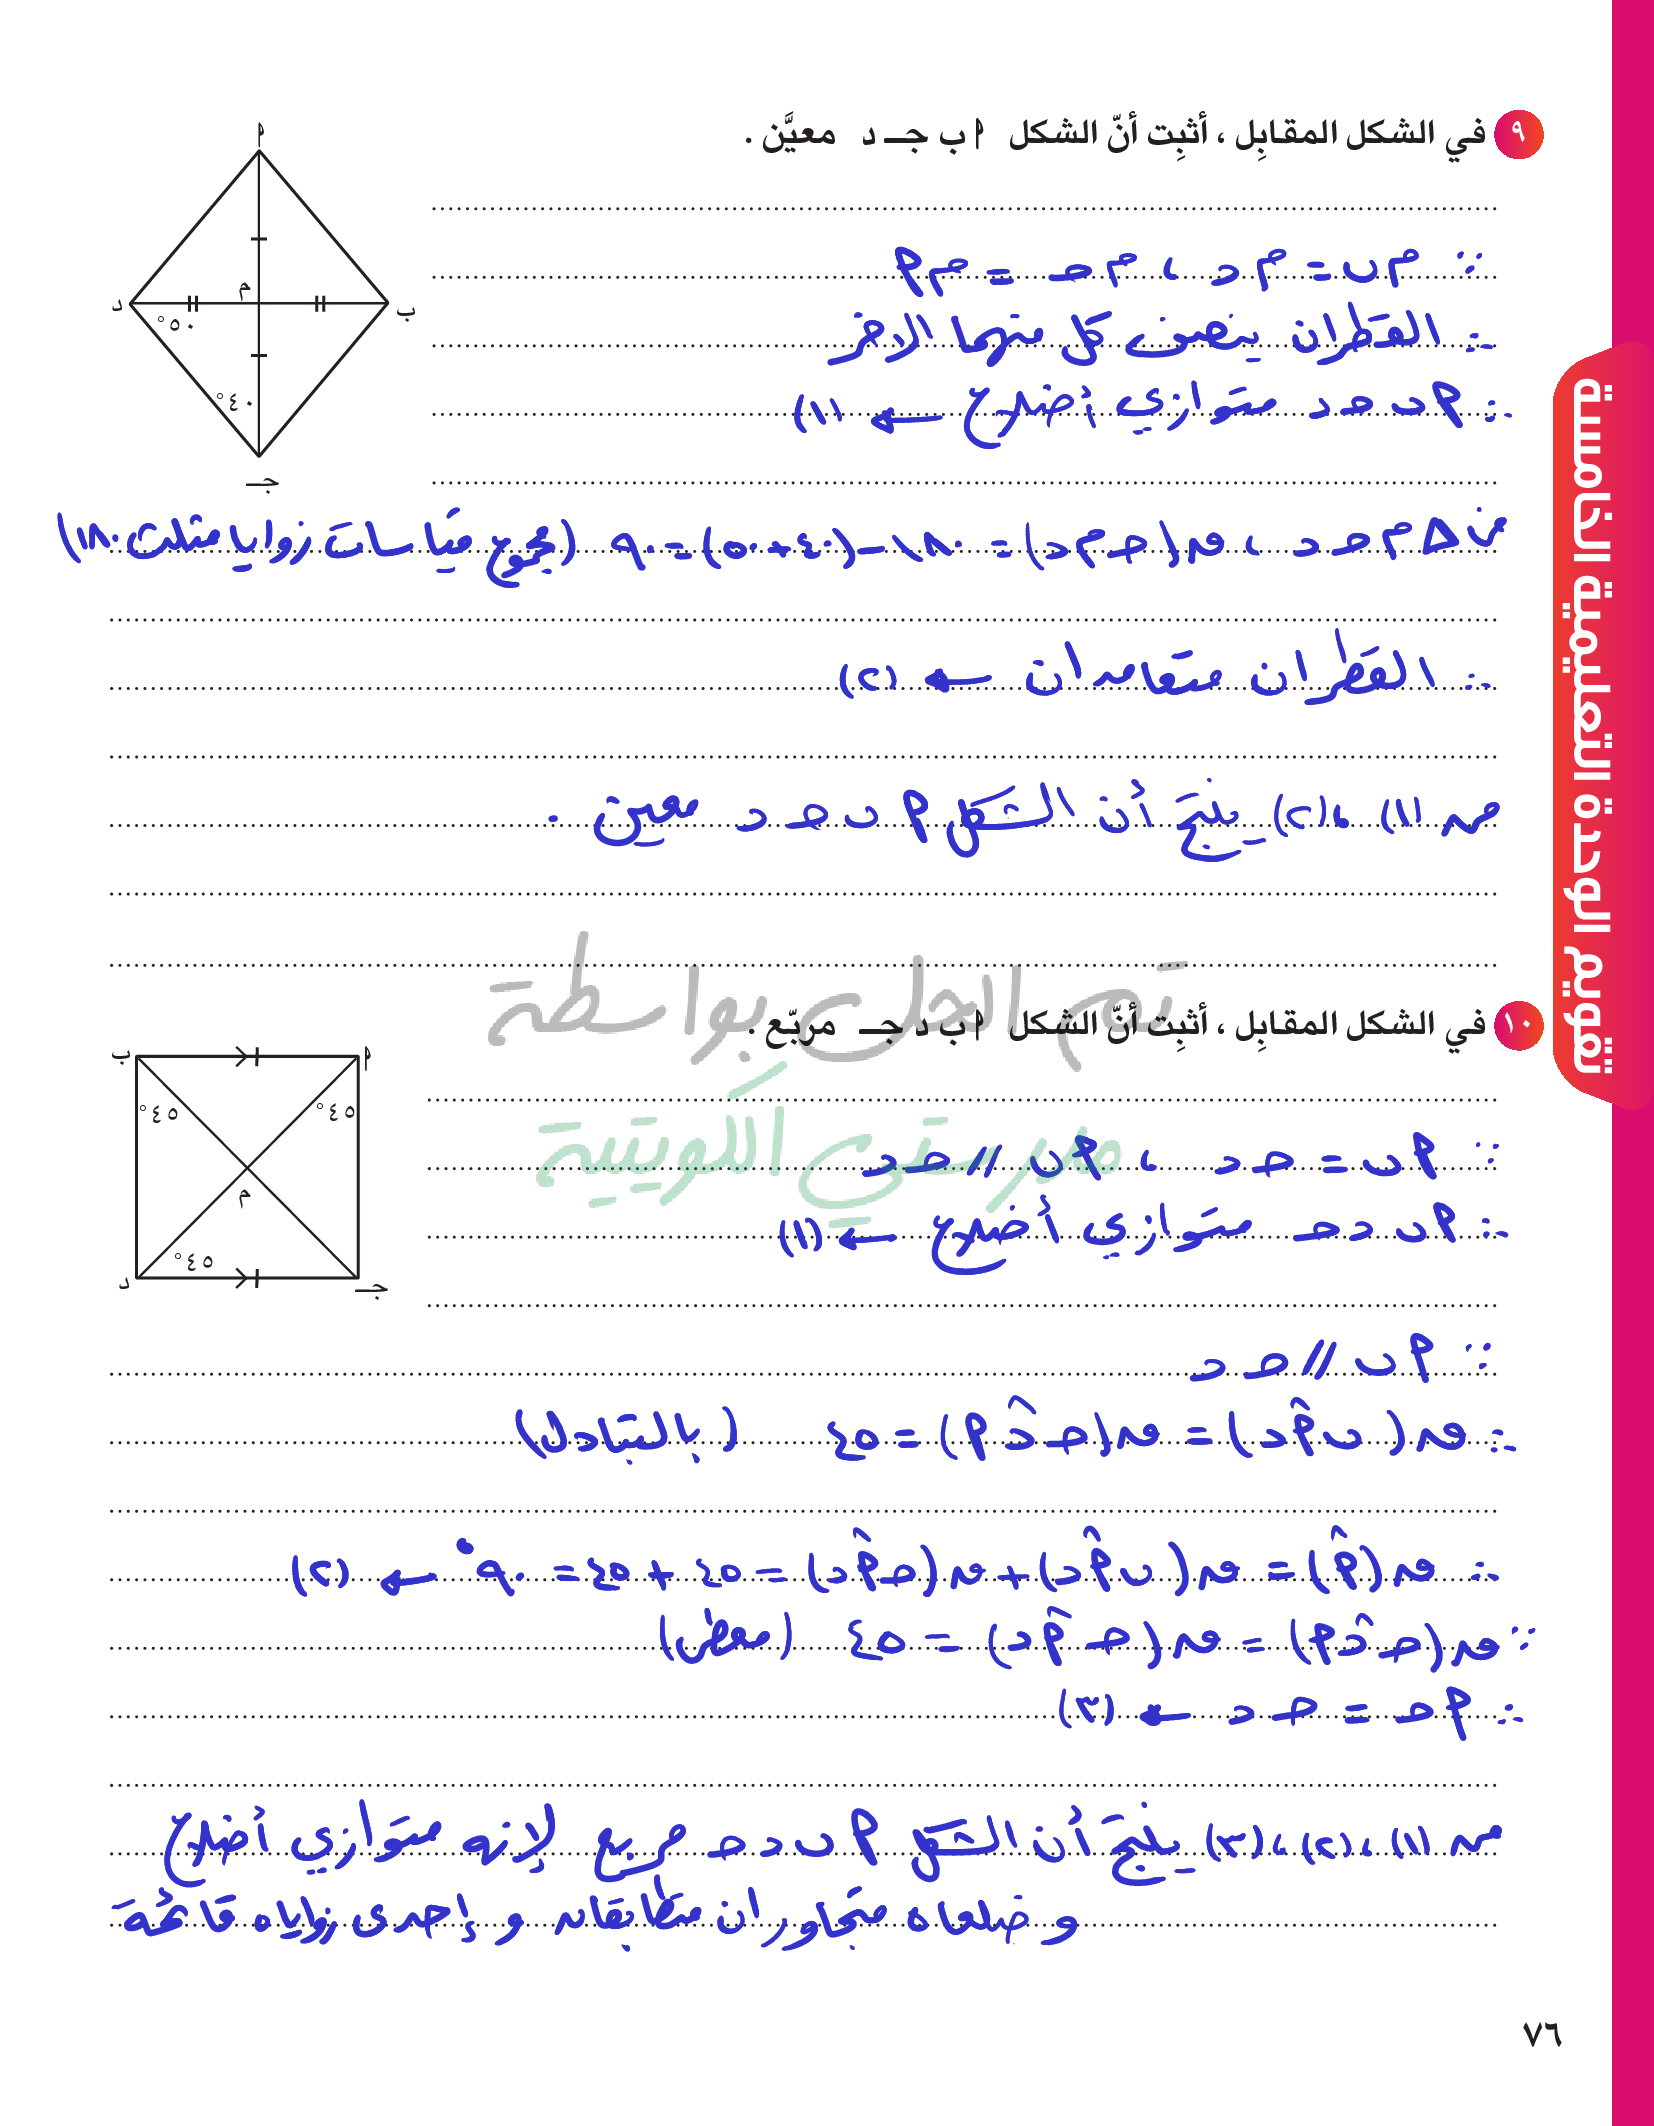 ٩ في الشكل المقابِل ، أثبِت أنّ الشكل أ ب جـ د معيَّن .
أ
ب
م
د
٥٠°
٤٠°
جـ
∵ م ب = م د ، م حـ = م أ
∴ القطران ينصف كل منهما الاخر
∴ أ ب حـ د متوازي أضلاع ← (١)
من Δ م حـ د ، ق(حـ م د) = ١٨٠ - (٤٠ + ٥٠) = ٩٠ (مجموع قياسات زوايا مثلث ١٨٠)
∴ القطران متعامدان ← (٢)
من (١) ،(٢) ينتج أن الشكل أ ب حـ د معين .
تم الحل بواسطة
مدرستي الكويتية
١٠ في الشكل المقابِل ، أثبِت أنّ الشكل أ ب د جـ مربّع .
ب
أ
٤٥°
٤٥°
م
٤٥°
د
جـ
∵ أ ب = حـ د ، أ ب // حـ د
∴ أ ب د حـ متوازي أضلاع ← (١)
∵ أ ب // حـ د
∴ ق( ب أ̂ د) = ق(حـ د̂ أ) = ٤٥ (بالتبادل)
∴ ق(أ̂) = ق(ب أ̂ د) + ق(حـ أ̂ د) = ٤٥ + ٤٥ = ٩٠° ← (٢)
∵ ق(حـ د̂ أ) = ق(حـ أ̂ د) = ٤٥ (معطى)
∴ أ حـ = حـ د ← (٣)
من (١) ،(٢) ،(٣) ينتج أن الشكل أ ب د حـ مربع لإنه متوازي أضلاع
و ضلعاه متجاوران متطابقان و إحدى زواياه قائمة
تقويم الوحدة التعليمية الخامسة
٧٦